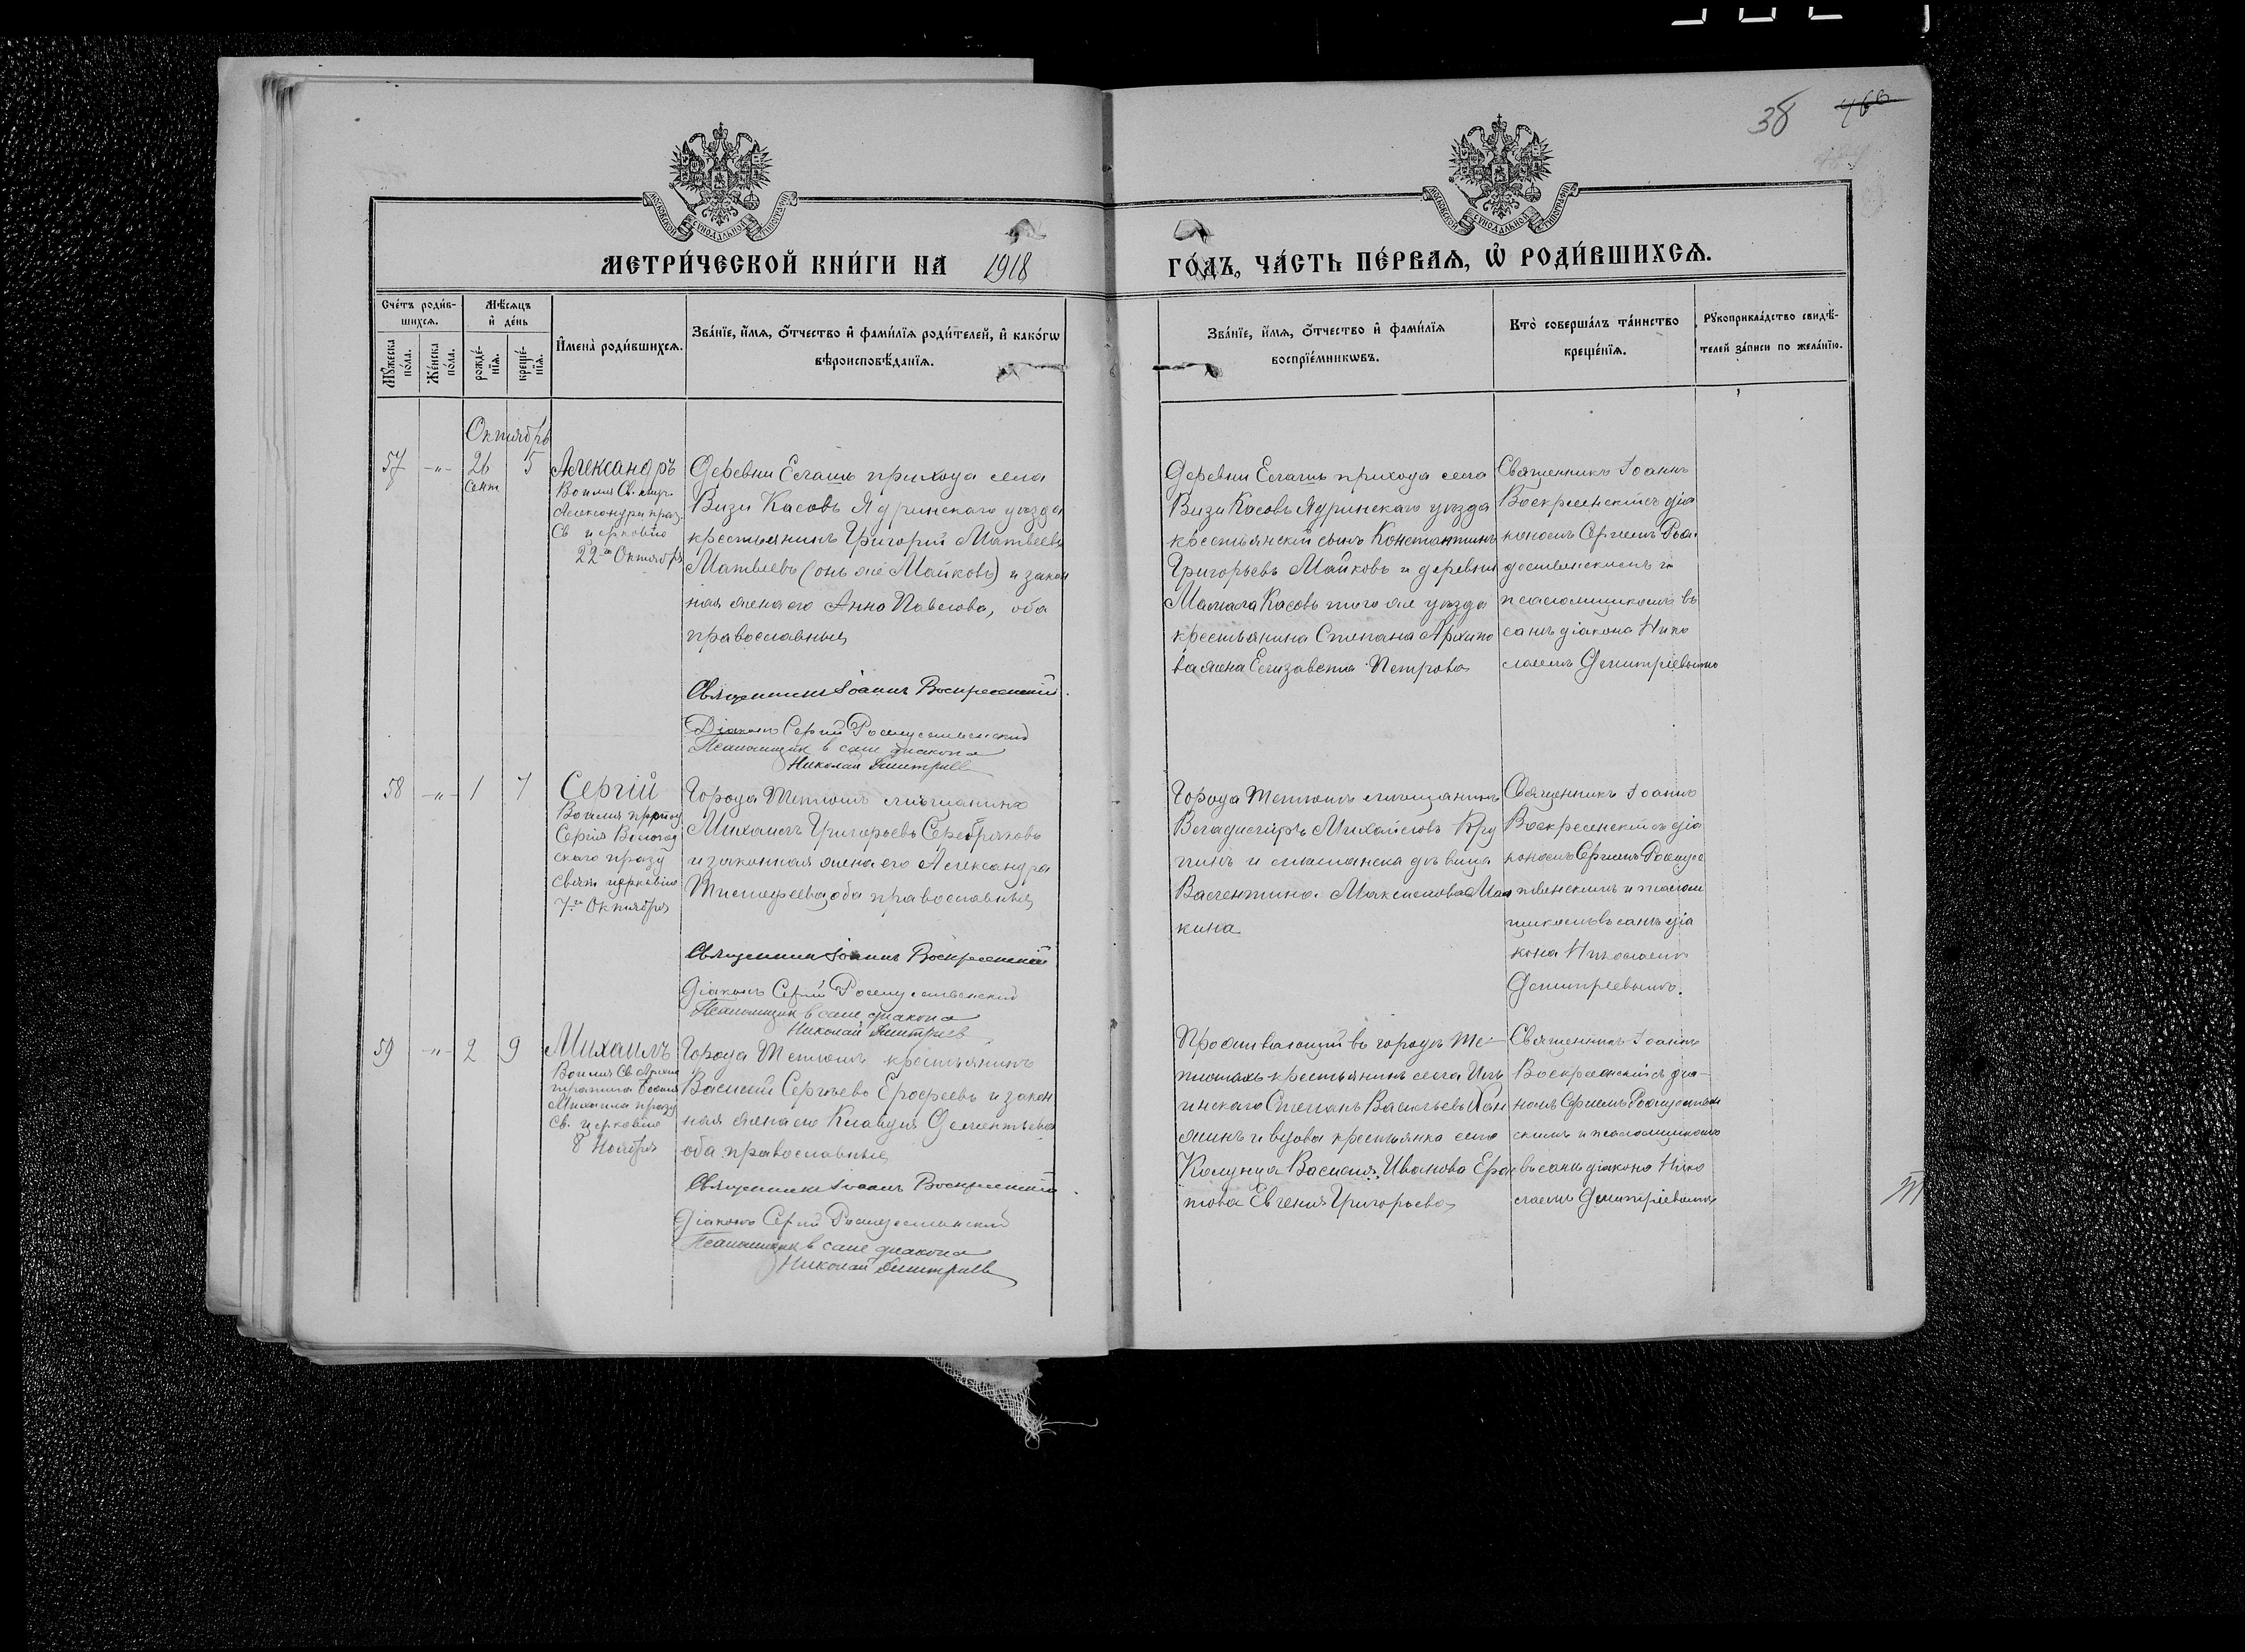 38 466
МОСКОВСКОЙ СѴНОДАЛЬНОЙ ТИПОГРАФІИ
МОСКОВСКОЙ СѴНОДАЛЬНОЙ ТИПОГРАФІИ
МЕТРИ́ЧЕСКОЙ КНИ́ГИ НА 1918 ГО́ДЪ, ЧА́СТЬ ПЕ́РВАѦ, Ѡ҆ РОДИ́ВШИХСѦ.
Сче́тъ роди́в-
шихсѧ.
Мꙋ́жеска по́ла.
Же́нска по́ла.
Мѣ́сѧцъ
и҆ де́нь
рожде́-
нїѧ.
креще́-
нїѧ.
И҆мена̀ роди́вшихсѧ.
Зва́нїе, и҆́мѧ, ѻ҆́тчество и҆ фами́лїѧ роди́телей, и҆ како́гѡ
вѣроисповѣ́данїѧ.
Зва́нїе, и҆́мѧ, ѻ҆́тчество и҆ фами́лїѧ
воспрїе́мникѡвъ.
Кто̀ соверша́лъ та́инство
креще́нїѧ.
Рꙋкоприкла́дство свидѣ́-
телей за́писи по жела́нїю.
Октябрь
57 -"- 26 5
Сент
Александръ
Во имя Св. муч.
Александра праз.
Св церковію
22го Октября
Деревни Елашъ прихода села
Визи Касовъ Ядринскаго уѣзда
крестьянинъ Григорій Матвеевъ
Матвеевъ (онъ же Майковъ) и закон
ная жена его Анна Павлова, оба
православные
Священникъ Іоаннъ Воскресенскій.
Діаконъ Сергій Рождественскій
Псаломщик в сане диакона
Николай Димитриев
Деревни Елашъ прихода села
Визи Касовъ Ядринскаго уѣзда
крестьянскій сынъ Константинъ
Григорьевъ Майковъ и деревни
Касовъ того же уѣзда
крестьянина Степана Архипо
ва жена Елизавета Петрова
Священникъ Іоаннъ
Воскресенскій съ діа
кономъ Сергіемъ Рож
дественскимъ и
псаломщикомъ въ
санѣ діакона Нико
лаемъ Димитріевымъ
58 -"- 1 7
Сергій
Во имя препод
Сергія Вологод
скаго празд
Свят церковію
7го Октября
Города Тетюшъ мѣщанинъ
Михаилъ Григорьевъ Серебряковъ
и законная жена его Александра
Тимофеева, оба православные
Священникъ Іоаннъ Воскресенскій
Діаконъ Сергій Рождественскій
Псаломщик в сане диакона
Николай Димитриев
Города Тетюшъ мѣщанинъ
Владиміръ Михайловъ
и мѣщанска дѣвица
Валентина Максимова
кина
Священникъ Іоаннъ
Воскресенскій съ діа
кономъ Сергіемъ Рождес
твенскимъ и псалом
щикомъ въ санѣ діа
кона Николаемъ
Димитріевымъ.
59 -"- 2 9
Михаилъ
Во имя Св Архис
тратига Божія
Михаила празд
Св. церковію
8 Ноября
Города Тетюшъ крестьянинъ
Василій Сергѣевъ Ерофеевъ и закон
ная жена его Клавдія Дементьева
оба православные
Священникъ Іоаннъ Воскресенскій.
Діаконъ Сергій Рождественский
Псаломщик в сане диакона
Николай Димитриев
Проживающій въ городѣ Те-
тюшахъ крестьянинъ села
Степанъ Васильевъ
и вдова крестьянка села
Василія Иванова
Евгенія Григорьева
Священникъ Іоаннъ
Воскресенскій съ діа-
кономъ Сергіемъ Рождествен
скимъ и псаломщикомъ
въ санѣ діакона Нико
лаемъ Димитріевымъ